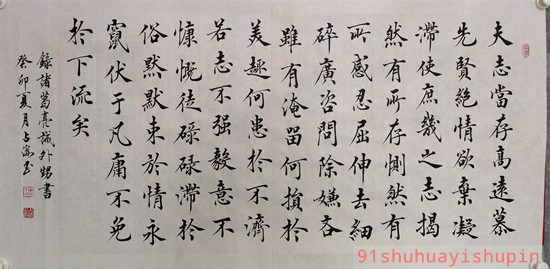 夫志當存高遠慕
先賢絕情欲棄凝
滯使庶幾之志揭
然有所存惻然有
所感忍屈伸去細
碎廣咨問除嫌吝
雖有淹留何損於
美趣何患於不濟
若志不强毅意不
慷慨徒碌碌滯於
俗默默束於情永
竄伏于凡庸不免
於下流矣
錄諸葛亮誡外甥書
癸卯夏月
91shuhuayishupin